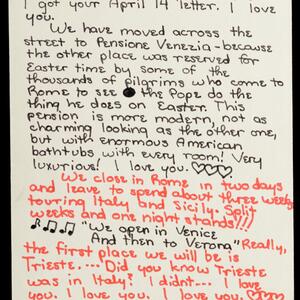 I got your April 14 letter. I love
you.
We have moved across the
street to Pensione Venezia - because
the other place was reserved for
Easter time by some of the
thousands of pilgrims who come to
Rome to see the Pope do the
thing he does on Easter. This
pension is more modern, not as
charming looking as the other one,
but with enormous American
bathtubs with every room! Very
luxurious! I love you. ♡♡♡
We close in Rome in two days
and leave to spend about three weeks
touring Italy and Sicily. Split
weeks and one night stands!!!
♪♫♪ "We open in Venice
And then to Verona" Really,
the first place we will be is
Trieste.... Did you know Trieste
was in Italy? I didnt--- I love
you. I love you. I love you. ♡♡♡